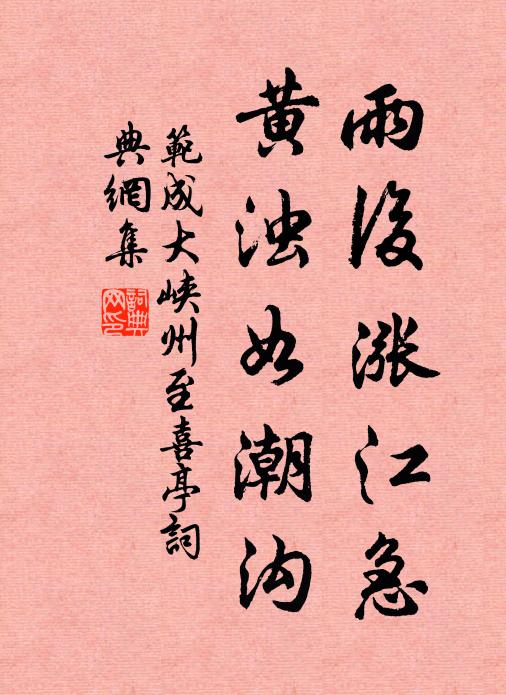 雨後漲江急
黄浊如潮沟
範成大峽州至喜亭詞
典網集
詞典網印